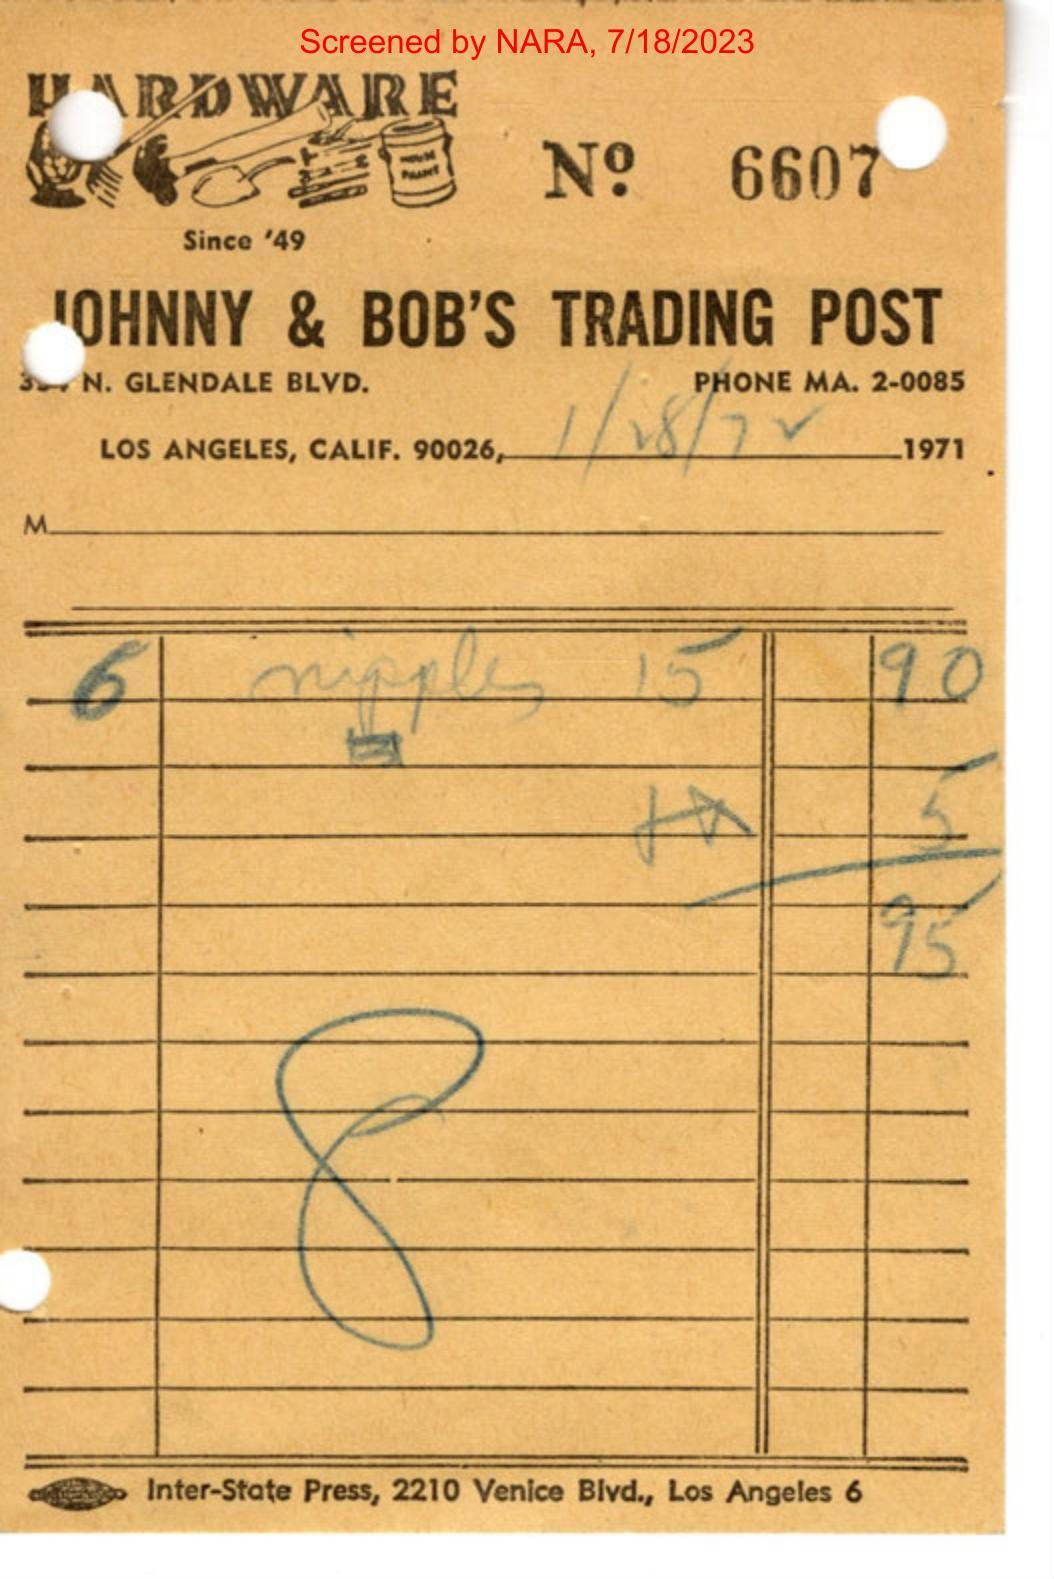 Screened by NARA, 7/18/2023
HARDWARE
HOUSE PAINT
Nº 6607
Since '49
JOHNNY & BOB'S TRADING POST
N. GLENDALE BLVD. PHONE MA. 2-0085
LOS ANGELES, CALIF. 90026, 1/28/72 1971
M
6 nipples 15 90
5
95
8
Inter-State Press, 2210 Venice Blvd., Los Angeles 6